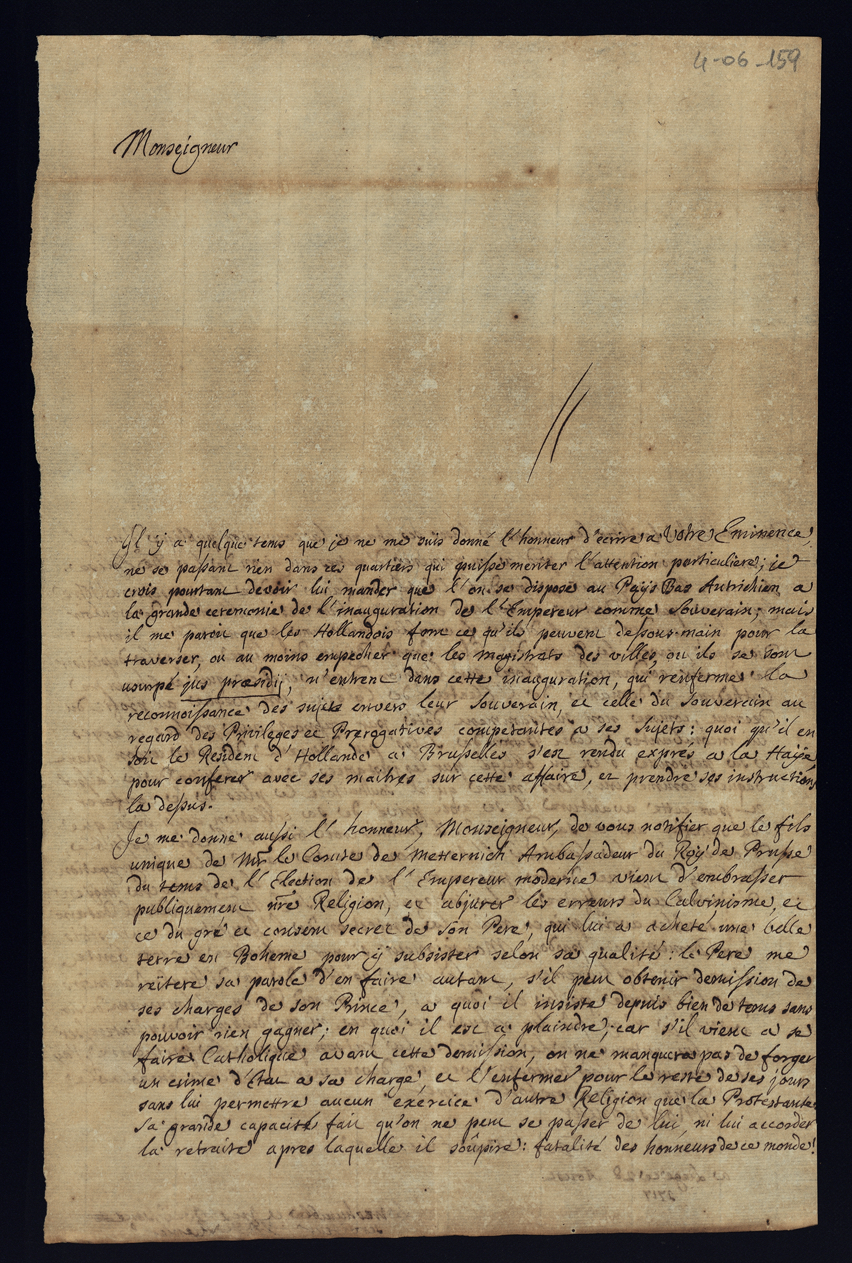 4-06-159
Monseigneur
Il y a quelque tems que je ne me suis donné l'honneur d'écrire a Votre Eminence,
ne se passant rien dans ces quartiers qui puisse meriter l'attention particuliere; je
crois pourtant devoir lui mander que l'on se dispose au Paÿs Bas Autrichien a
la grande ceremonie de l'inauguration de l'Empereur comme Souverain; mais
il me paroit que les Hollandois font ce qu'ils peuvent dessous main pour la
traverser, ou au moins empecher que les Magistrats des villes, ou ils se sont
usurpé jus præsidij, n'entrent dans cette inauguration, qui renferme la
reconnoissance des sujets envers leur Souverain, et celle du Souverain au
regard des Privileges et Prerogatives competantes a ses Sujets: quoi qu'il en
soit le Resident d'Hollande a Brusselles s'est rendu exprés a la Haÿe
pour conferer avec ses maitres sur cette affaire, et prendre ses instructions
la dessus.
Je me donne aussi l'honneur, Monseigneur, de vous notifier que le fils
unique de Mr. le Comte de Metternich Ambassadeur du Roÿ de Prusse
du tems de l'Election de l'Empereur moderne vient d'embrasser
publiquement nre Religion, et abjurer les erreurs du Calvinisme, et
ce du gré et consent secret de son Pere, qui lui a acheté une belle
terre en Boheme pour ÿ subsister selon sa qualité: le Pere me
reïtere sa parole d'en faire autant, s'il peut obtenir demission de
ses charges de son Prince, a quoi il insiste depuis bien de tems sans
pouvoir rien gagner; en quoi il est a plaindre, car s'il vient a se
faire Catholique avant cette demission, on ne manquera pas de forger
un crime d'Etat a sa charge, et l'enfermer pour le reste de ses jours
sans lui permettre aucun exercice d'autre Religion que la Protestante.
Sa grande capacité fait qu'on ne peut se passer de lui, ni lui accorder
la retraite apres laquelle il soûpire: fatalité des honneurs de ce monde!